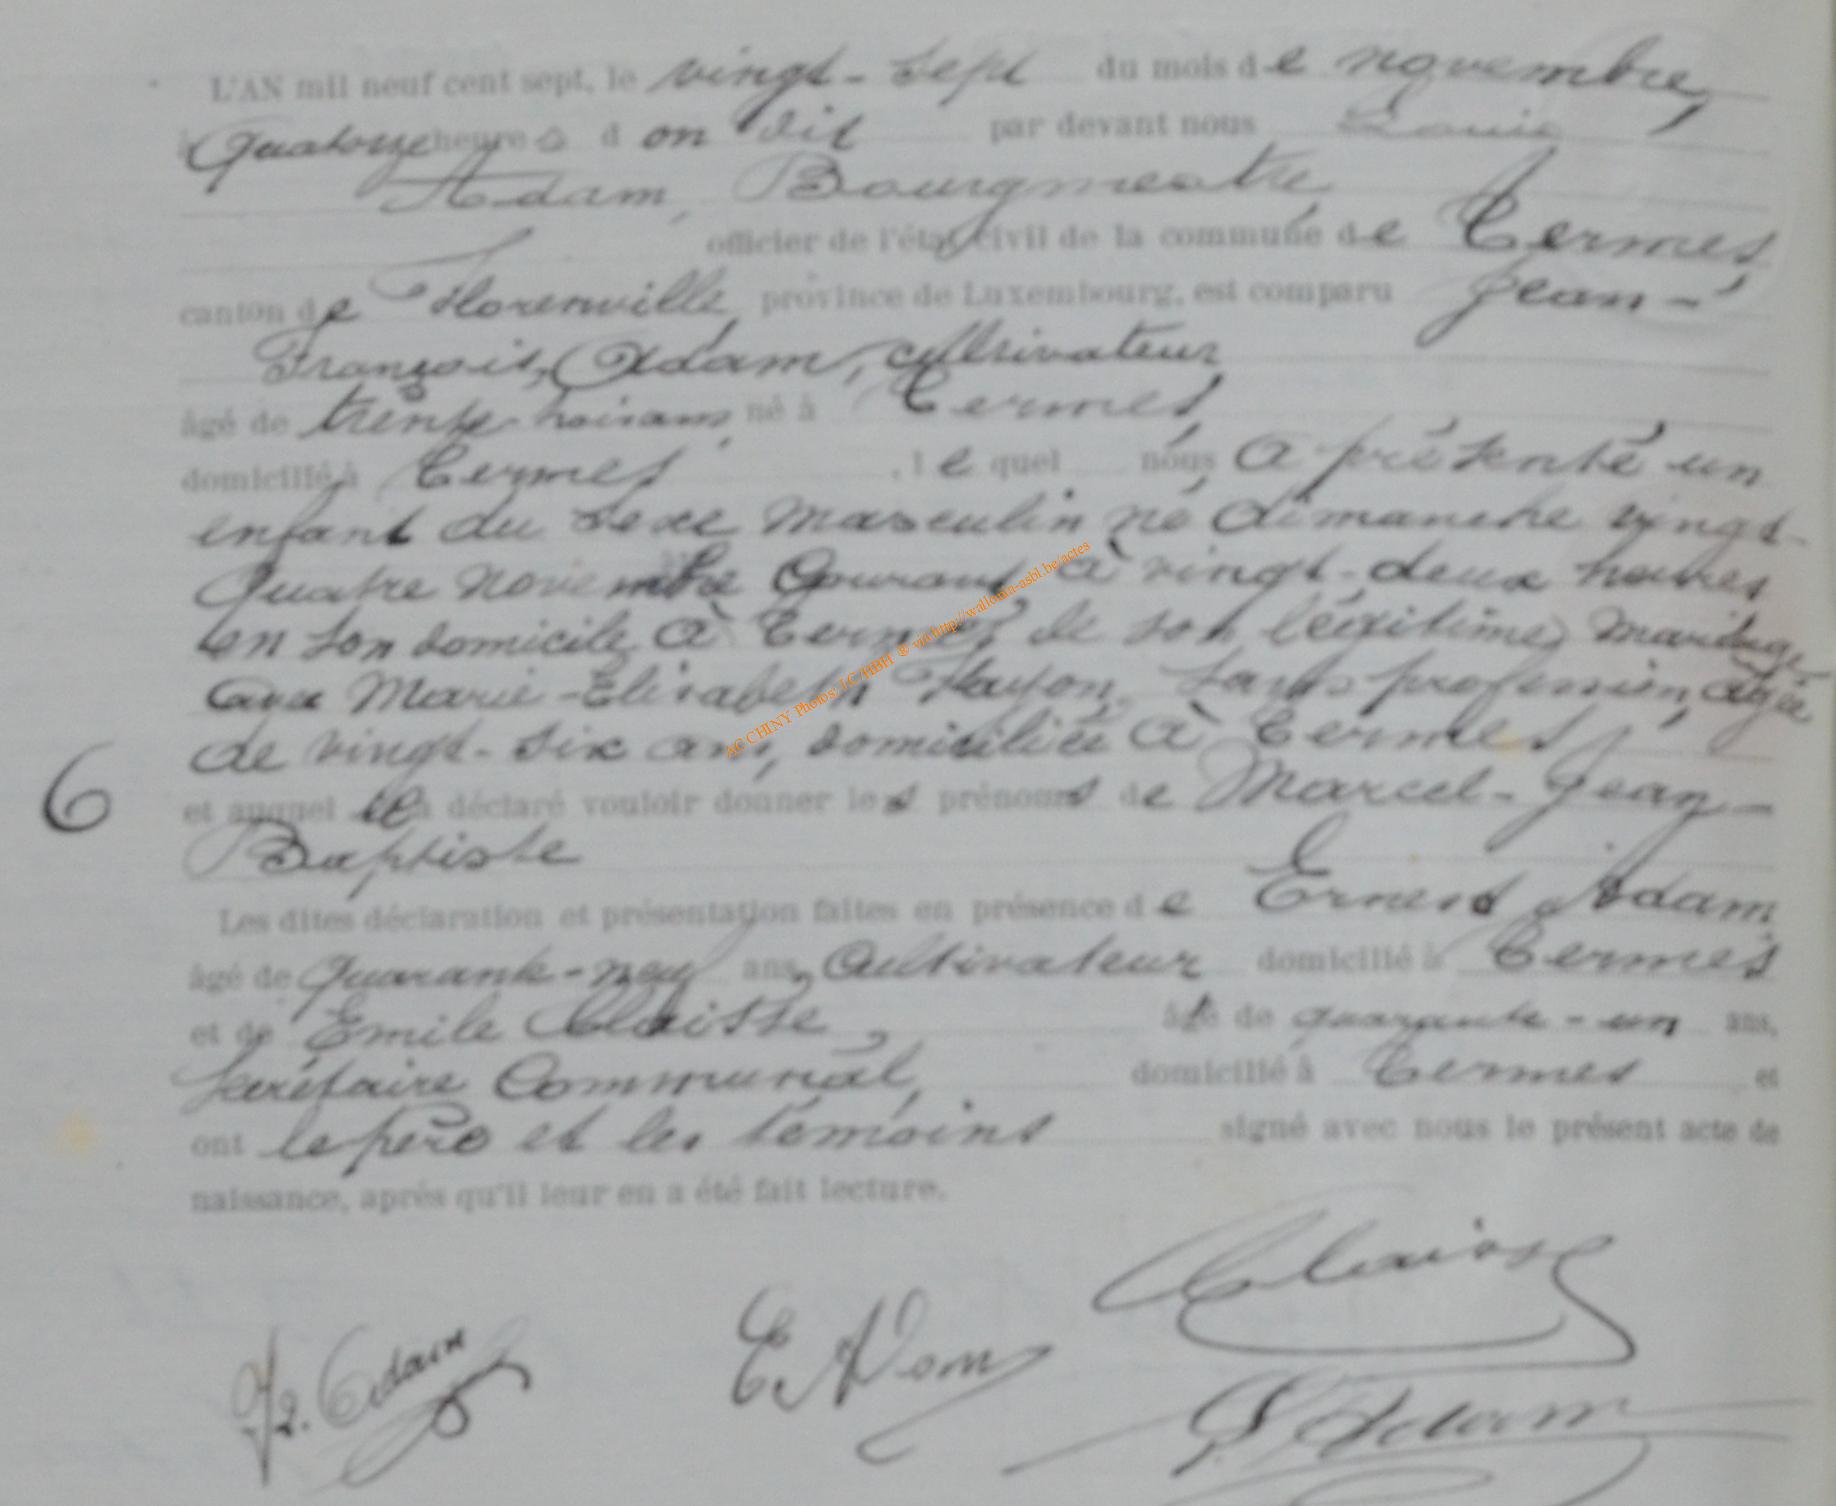 L'AN mil neuf cent sept, le vingt-sept du mois de novembre,
à quatorze heures d on dit par devant nous Louis
Adam, Bourgmestre,
officier de l'état civil de la commune de Termes,
canton de Florenville, province de Luxembourg, est comparu Jean-
François, Adam, cultivateur,
âgé de trente-trois ans, né à Termes,
domicilié à Termes, lequel nous a présenté un
enfant du sexe masculin né dimanche vingt-
quatre novembre courant à vingt-deux heures
en son domicile à Termes, de son légitime mariage
avec Marie-Elisabeth Hayon, sans profession, âgée
de vingt-six ans, domiciliée à Termes,
6
et auquel il a déclaré vouloir donner les prénoms de Marcel-Jean-
Baptiste
Les dites déclaration et présentation faites en présence de Ernest Adam,
âgé de quarante-neuf ans, cultivateur domicilié à Termes
et de Emile Claisse, âgé de quarante-un ans,
secrétaire communal, domicilié à Termes et
ont le père et les témoins signé avec nous le présent acte de
naissance, après qu'il leur en a été fait lecture.
Claisse
J. Adam
E Adam
L. Adam
AC CHINY Photos JC/HBH ® via http://wallonia-asbl.be/actes